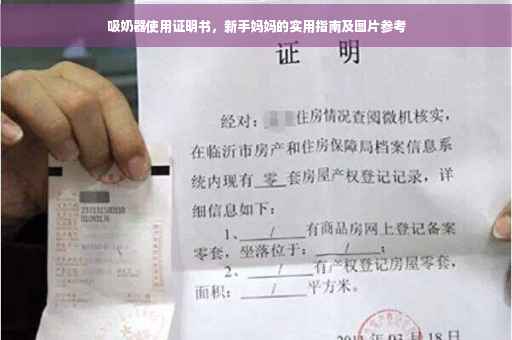 吸奶器使用证明书，新手妈妈的实用指南及图片参考
证 明
经对：住房情况查阅微机核实，
在临沂市房产和住房保障局档案信息系
统内现有 零 套房屋产权登记记录，详
细信息如下：
1、 / 有商品房网上登记备案
零套，坐落位于： / ；
2、 / 有产权登记房屋零套，
面积： / 平方米。
03 月 18 日